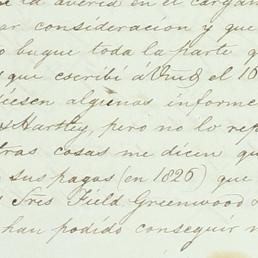 la averia en el cargam
ar consideración y que
o buque toda la parte q
que escribi á Vmd el 16
iesen algunos informe
Hartley, pero no lo rep
tras cosas me dicen qu
sus pagos (en 1826) que
Sres Field Greenwood
han podido conseguir n